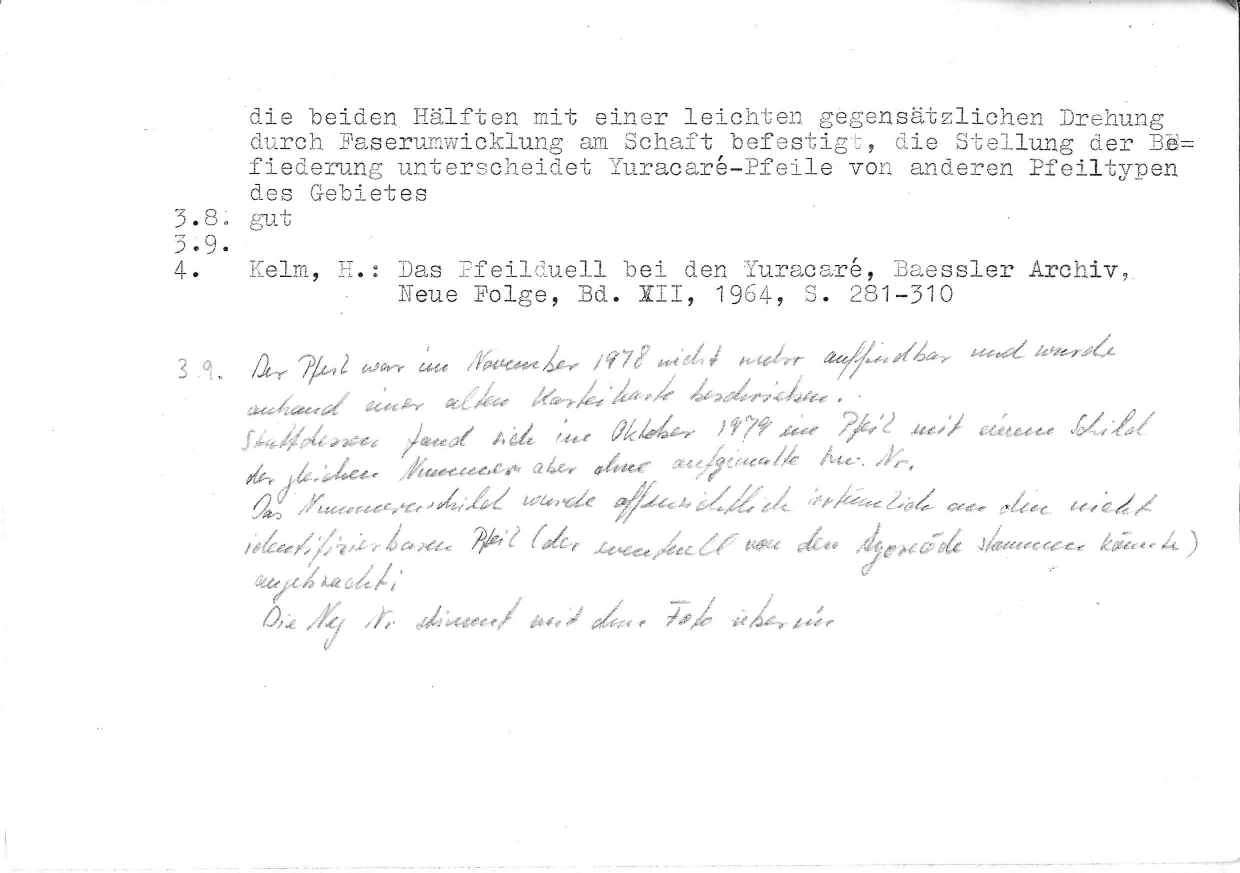 die beiden Hälften mit einer leichten gegensätzlichen Drehung
durch Faserumwicklung am Schaft befestigt, die Stellung der Be=
fiederung unterscheidet Yuracaré-Pfeile von anderen Pfeiltypen
des Gebietes
3.8. gut
3.9.
4. Kelm, H.: Das Pfeilduell bei den Yuracaré, Baessler Archiv,
Neue Folge, Bd. XII, 1964, S. 281-310
3.9. Der Pfeil war im November 1978 nicht mehr auffindbar und wurde
anhand einer alten Karteikarte beschrieben.
Stattdessen fand sich im Oktober 1979 ein Pfeil mit einem Schild
der gleichen Nummer aber ohne aufgemalte Inv. Nr.
Das Nummernschild wurde offensichtlich irrtümlich an den nicht
identifizierbaren Pfeil (der eventuell von den Ayoreóde stammen könnte)
angebracht;
Die Neg Nr stimmt mit dem Foto überein